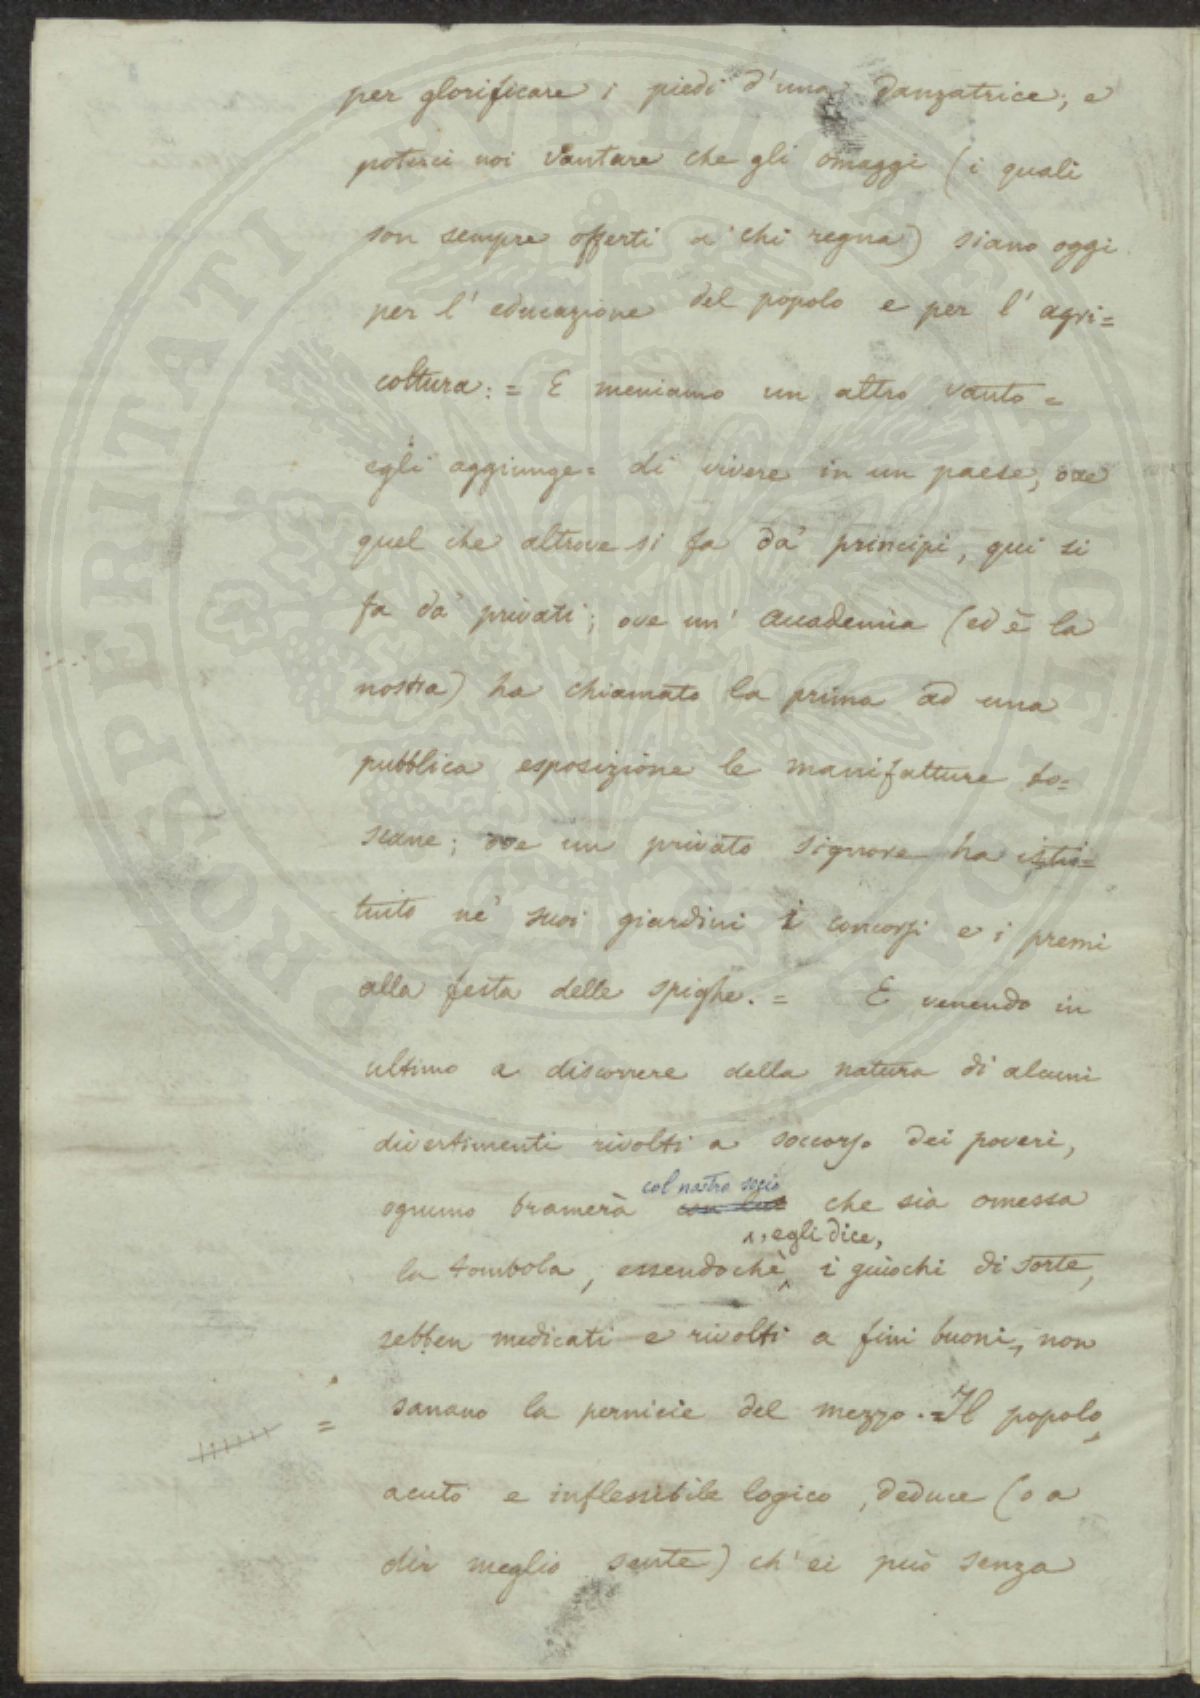 per glorificare i piedi d'una danzatrice; e
poterci noi vantare che gli omaggi (i quali
son sempre offerti a' chi regna) siano oggi
per l'educazione del popolo e per l'agri=
coltura: = E meniamo un altro vanto =
egli aggiunge = di vivere in un paese, ove
quel che altrove si fa da' principi, qui si
fa da' privati; ove un' accademia (ed è la
nostra) ha chiamato la prima ad una
pubblica esposizione le manifatture to=
scane; ove un privato signore ha isti=
tuito ne' suoi giardini i concorsi e i premi
alla festa delle spighe. = E venendo in
ultimo a discorrere della natura di alcuni
divertimenti rivolti a soccorso dei poveri,
col nostro socio
ognuno bramerà con lui che sia omessa
, egli dice,
la tombola, essendochè i giuochi di sorte,
sebben medicati e rivolti a fini buoni, non
= sanano la pernicie del mezzo. = Il popolo,
acuto e inflessibile logico, deduce (o a
dir meglio sente) ch'ei può senza
PROSPERITATI PVBLICAE AVGENDAE